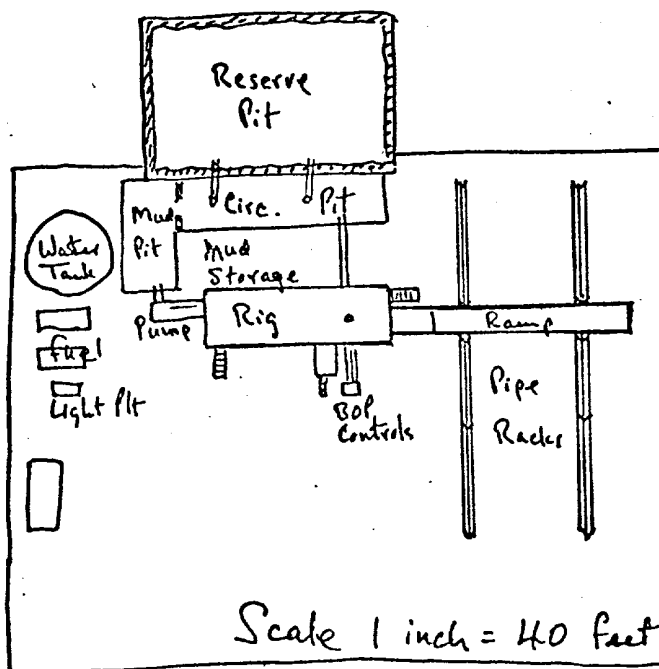 Reserve
Pit
Mud
Pit
Circ. Pit
Mud
Storage
Water
Tank
Pump
Rig
Ramp
Fuel
Light Plt
BOP
Controls
Pipe
Racks
Scale 1 inch = 40 feet